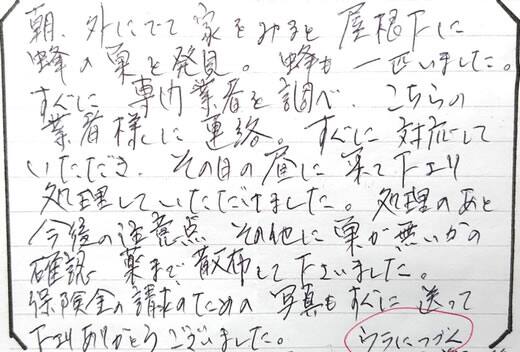 朝、外にでて家をみると屋根下に
蜂の巣を発見。蜂も一匹いました。
すぐに専門業者を調べ、こちらの
業者様に連絡。すぐに対応して
いただき、その日の昼に来て下さり
処理していただけました。処理のあと
今後の注意点 その他に巣が無いかの
確認 薬まで散布して下さいました。
保険金の請求のための写真もすぐに送って
下さりありがとうございました。
ウラにつづく